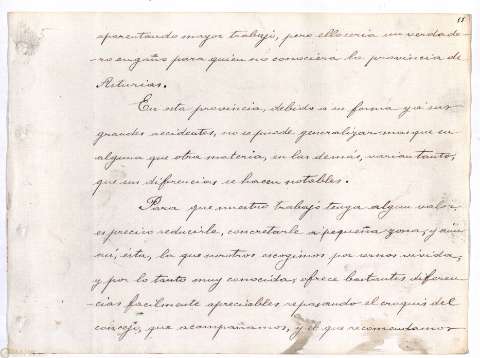 55
aparentando mayor trabajo, pero ello sería un verdade-
-ro engaño para quien no conociera la provincia de
Asturias.
En esta provincia, debido a su forma y a sus
grandes accidentes, no se puede generalizar mas que en
alguna que otra materia, en las demás, varian tanto,
que sus diferencias se hacen notables.
Para que nuestro trabajo tenga algun valor,
es preciso reducirle, concretarle a pequeña zona, y aún
así, ésta, la que nosotros escogimos por sernos vivida,
y por lo tanto muy conocida, ofrece bastantes diferen-
-cias facilmente apreciables repasando el croquis del
concejo, que acompañamos, y el que recomendamos